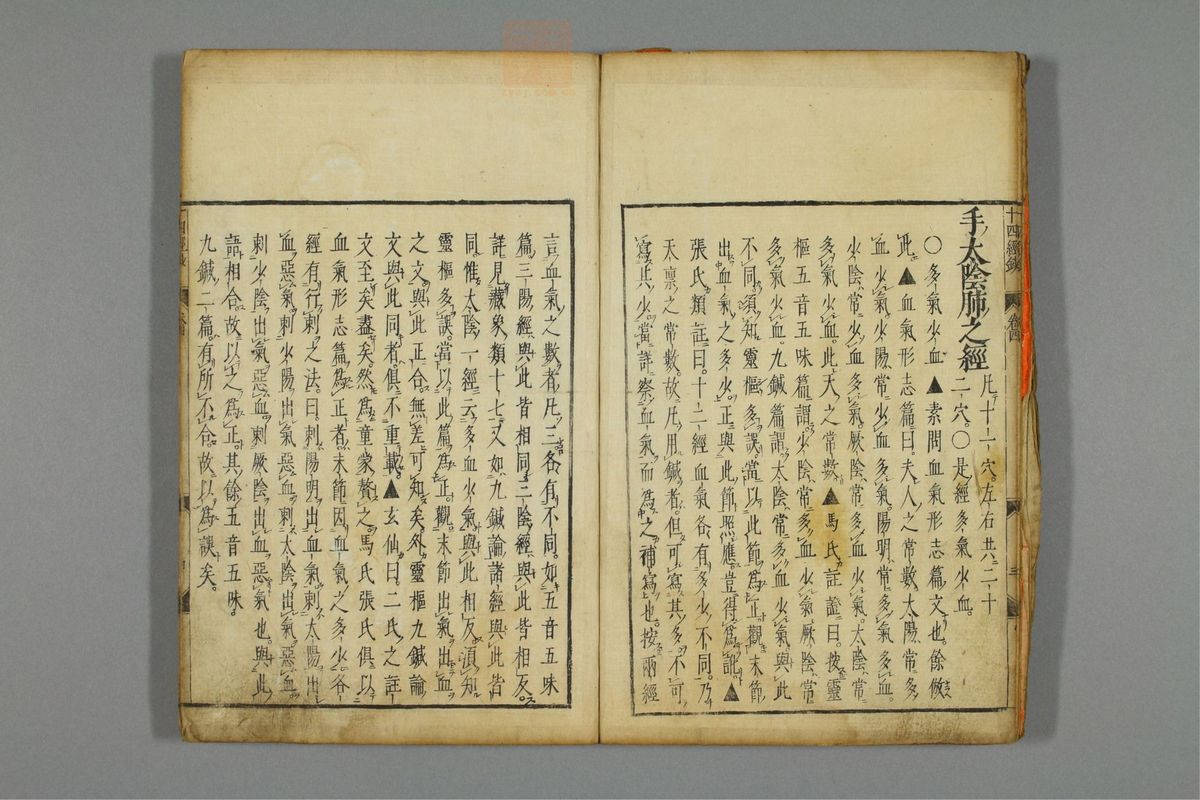 十四經鈔 卷四 三
手太陰肺之經 凡十一穴左右共二十
二穴〇是經多氣少血
〇多氣少血▲素問血氣形志篇文也餘倣
此▲血氣形志篇曰夫人之常數太陽常多
血少氣少陽常少血多氣陽明常多氣多血
少陰常少血多氣厥陰常多血少氣太陰常
多氣少血此天之常數▲馬氏註證曰按靈
樞五音五味篇謂少陰常多血少氣厥陰常
多氣少血九鍼篇謂太陰常多血少氣與此
不同須知靈樞多誤當以此節為正觀末節
出血氣之多少正與此節照應豈得為訛▲
張氏類註曰十二經血氣各有多少不同乃
天稟之常數故凡用鍼者但可寫其多不可
寫其少當詳察血氣而為之補寫也按兩經
言血氣之數者凡三各有不同如五音五味
篇三陽經與此皆相同三陰經與此皆相反
詳見藏象類十七又如九鍼論諸經與此皆
同惟太陰一經云多血少氣與此相反須知
靈樞多誤當以此篇為正觀末節出氣出血
之文與此正合無差可知矣外靈樞九鍼論
文與此同者俱不重載▲玄仙曰二氏之註
文至矣盡矣然為童蒙贅之馬氏張氏俱以
血氣形志篇為正者末節因血氣之多少各
經有行刺之法曰刺陽明出血氣刺太陽出
血惡氣刺少陽出氣惡血刺太陰出氣惡血
刺少陰出氣惡血刺厥陰出血惡氣也與此
語相合故以之為正其餘五音五味
九鍼二篇有所不合故以為誤矣